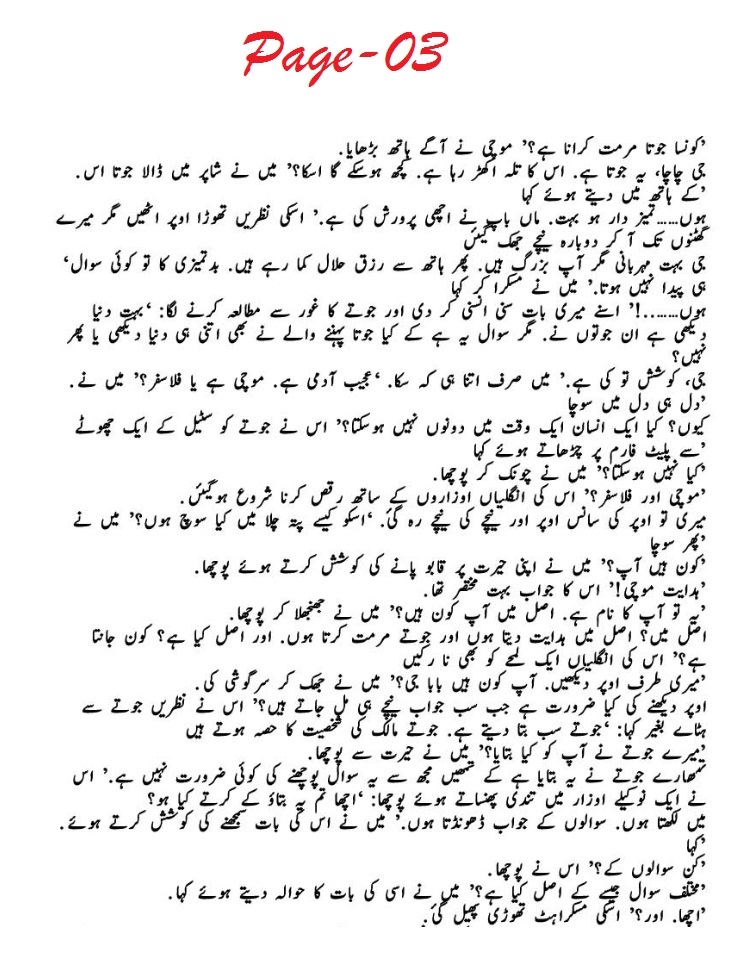 Page-03
’کونسا جوتا مرمت کرانا ہے؟’ موچی نے آگے ہاتھ بڑھایا.
جی چاچا، یہ جوتا ہے. اس کا تلہ اکھڑ رہا ہے. کچھ ہوسکے گا اسکا؟’ میں نے شاپر میں ڈالا جوتا اس.
’کے ہاتھ میں دیتے ہوئے کہا
ہوں……تمیز دار ہو بہت. ماں باپ نے اچھی پرورش کی ہے.’ اسکی نظریں تھوڑا اوپر اٹھیں مگر میرے
گھٹنوں تک آ کر دوبارہ نیچے جھک گیئں
جی بہت مہربانی مگر آپ بزرگ ہیں. پھر ہاتھ سے رزق حلال کما رہے ہیں. بدتمیزی کا تو کوئی سوال‘
ہی پیدا نہیں ہوتا.’ میں نے مسکرا کر کہا
ہوں……..!’ اسنے میری بات سنی انسنی کر دی اور جوتے کا غور سے مطالعہ کرنے لگا: ‘بہت دنیا
دیکھی ہے ان جوتوں نے. مگر سوال یہ ہے کے کیا جوتا پہننے والے نے بھی اتنی ہی دنیا دیکھی یا پھر
نہیں؟
جی، کوشش تو کی ہے.’ میں صرف اتنا ہی کہ سکا. ‘عجیب آدمی ہے. موچی ہے یا فلاسفر؟’ میں نے.
’دل ہی دل میں سوچا
کیوں؟ کیا ایک انسان ایک وقت میں دونوں نہیں ہوسکتا؟’ اس نے جوتے کو سٹیل کے ایک چھوٹے
’سے پلیٹ فارم پر چڑھاتے ہوئے کہا
’کیا نہیں ہوسکتا؟’ میں نے چونک کر پوچھا.
’موچی اور فلاسفر؟’ اس کی انگلیاں اوزاروں کے ساتھ رقص کرنا شروع ہوگیئں.
میری تو اوپر کی سانس اوپر اور نیچے کی نیچے رہ گئ. ‘اسکو کیسے پتہ چلا میں کیا سوچ ہوں؟’ میں نے
’پھر سوچا
’کون ہیں آپ؟’ میں نے اپنی حیرت پر قابو پانے کی کوشش کرتے ہوئے پوچھا.
’ہدایت موچی!’ اس کا جواب بہت مختصر تھا.
’یہ تو آپ کا نام ہے. اصل میں آپ کون ہیں؟’ میں نے جھنجھلا کر پوچھا.
اصل میں؟ اصل میں ہدایت دیتا ہوں اور جوتے مرمت کرتا ہوں. اور اصل کیا ہے؟ کون جانتا
ہے؟’ اس کی انگلیاں ایک لمحے کو بھی نا رکیں
’میری طرف اوپر دیکھیں. آپ کون ہیں بابا جی؟’ میں نے جھک کر سرگوشی کی.
اوپر دیکھنے کی کیا ضرورت ہے جب سب جواب نیچے ہی مل جاتے ہیں؟’ اس نے نظریں جوتے سے
ہٹائے بغیر کہا: ‘جوتے سب بتا دیتے ہے. جوتے مالک کی شخصیت کا حصہ ہوتے ہیں
’میرے جوتے نے آپ کو کیا بتایا؟’ میں نے حیرت سے پوچھا.
تمھارے جوتے نے یہ بتایا ہے کے تمھیں مجھ سے یہ سوال پوچھنے کی کوئی ضرورت نہیں ہے.’ اس
نے ایک نوکیلے اوزار میں تندی پھنساتے ہوئے پوچھا: ‘اچھا تم یہ بتاؤ کے کرتے کیا ہو؟
میں لکھتا ہوں. سوالوں کے جواب ڈھونڈتا ہوں.’ میں نے اس کی بات سمجھنے کی کوشش کرتے ہوئے.
’کہا
’کن سوالوں کے؟’ اس نے پوچھا.
’مختلف سوال جیسے کے اصل کیا ہے؟’ میں نے اسی کی بات کا حوالہ دیتے ہوئے کہا.
’اچھا. اور؟’ اسکی مسکراہٹ تھوڑی پھیل گئ.